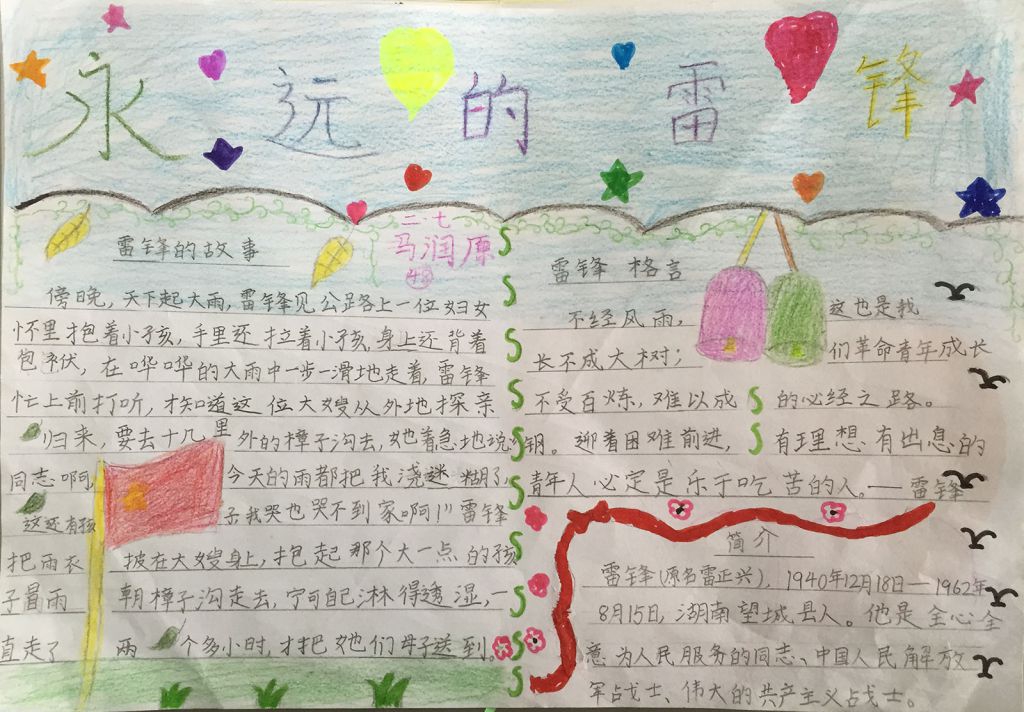 永远的雷锋
二·七
马润原
48
雷锋的故事
傍晚，天下起大雨，雷锋见公路上一位妇女
怀里抱着小孩，手里还拉着小孩，身上还背着
包袱，在哗哗的大雨中一步一滑地走着，雷锋
忙上前打听，才知道这位大嫂从外地探亲
归来，要去十几里外的樟子沟去，她着急地说：
同志啊，今天的雨都把我浇迷糊了，
这还有孩子我哭也哭不到家啊！”雷锋
把雨衣披在大嫂身上，抱起那个大一点的孩
子冒雨朝樟子沟走去，宁可自己淋得透湿，一
直走了两个多小时，才把她们母子送到。
雷锋 格言
不经风雨，
长不成大树；
不受百炼，难以成
钢。迎着困难前进，
这也是我
们革命青年成长
的必经之路。
有理想有出息的
青年人必定是乐于吃苦的人。—雷锋
简介
雷锋（原名雷正兴），1940年12月18日—1962年
8月15日，湖南望城县人。他是全心全
意为人民服务的同志、中国人民解放
军战士、伟大的共产主义战士。